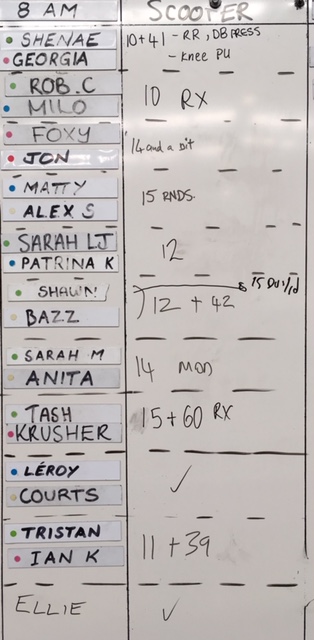 8 AM SCOOTER
SHENAE 10+41 - RR, DB PRESS
GEORGIA - KNEE PU
ROB.C
MILO 10 RX
FOXY 14 and a bit
JON
MATTY 15 RNDS.
ALEX S
SARAH LJ 12
PATRINA K
SHAWN 15
BAZZ 12 + 42
SARAH M 14 MOD
ANITA
TASH 15+60 RX
KRUSHER
LEROY ✓
COURTS
TRISTAN 11 +39
IAN K
ELLIE ✓